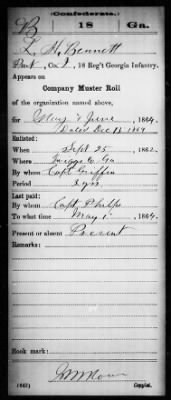 Confederate.
B 18 Ga.
L. H. Bennett
Pvt, Co. I, 18 Reg't Georgia Infantry.
Appears on
Company Muster Roll
of the organization named above,
for May & June, 1864.
Dated Dec 13 1864
Enlisted:
When Sept 25, 1862.
Where Twiggs Co. Ga
By whom Capt Griffin
Period 3 yrs
Last paid:
By whom Capt Phelps
To what time May 1, 1864.
Present or absent Present
Remarks:
Book mark:
(642) Copyist.